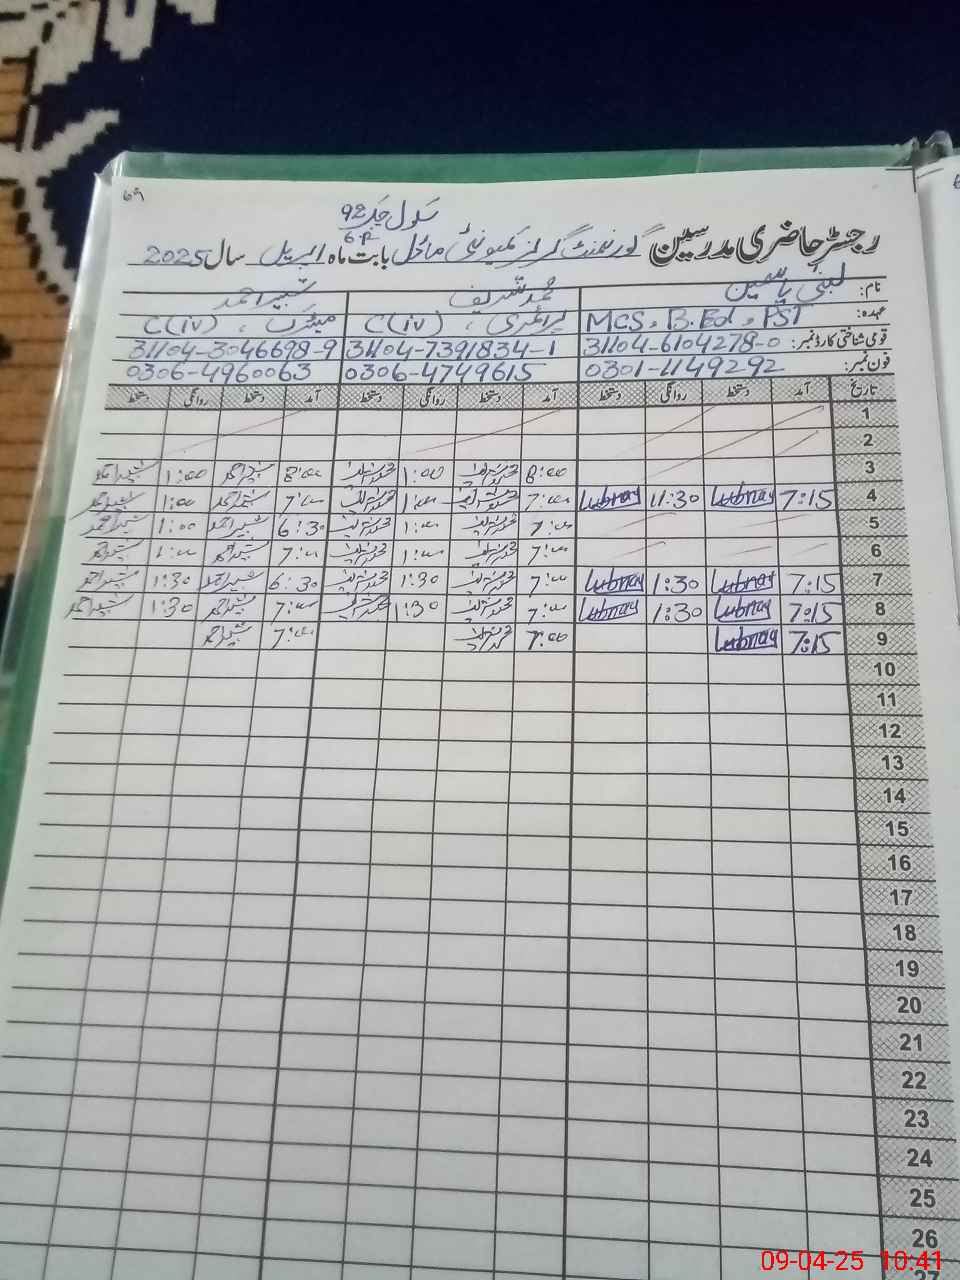 69
سکول چک 92
6-P
رجسٹر حاضری مدرسین گورنمنٹ گرلز کمیونٹی ماڈل بابت ماہ اپریل سال 2025
نام: لبنیٰ یاسمین محمد شریف شبیر احمد
عہدہ: MCS, B.Ed, PST پرائمری، C(iv) میٹرک، C(iv)
قومی شناختی کارڈ نمبر: 31104-6104278-0 31104-7391834-1 31104-3046698-9
فون نمبر: 0301-1149292 0306-4749615 0306-4960063
تاریخ آمد دستخط روانگی دستخط آمد دستخط روانگی دستخط آمد دستخط روانگی دستخط
1
2
3 8:00 محمد شریف 1:00 محمد شریف 8:00 شبیر احمد 1:00 شبیر احمد
4 7:15 Lubnay 11:30 Lubnay 7:00 محمد شریف 1:00 محمد شریف 7:00 شبیر احمد 1:00 شبیر احمد
5 7:00 محمد شریف 1:00 محمد شریف 6:30 شبیر احمد 1:00 شبیر احمد
6 7:00 محمد شریف 1:00 محمد شریف 7:00 شبیر احمد 1:00 شبیر احمد
7 7:15 Lubnay 1:30 Lubnay 7:00 محمد شریف 1:30 محمد شریف 6:30 شبیر احمد 1:30 شبیر احمد
8 7:15 Lubnay 1:30 Lubnay 7:00 محمد شریف 1:30 محمد شریف 7:00 شبیر احمد 1:30 شبیر احمد
9 7:15 Lubnay 7:00 محمد شریف 7:00 شبیر احمد
10
11
12
13
14
15
16
17
18
19
20
21
22
23
24
25
26
27
09-04-25 10:41